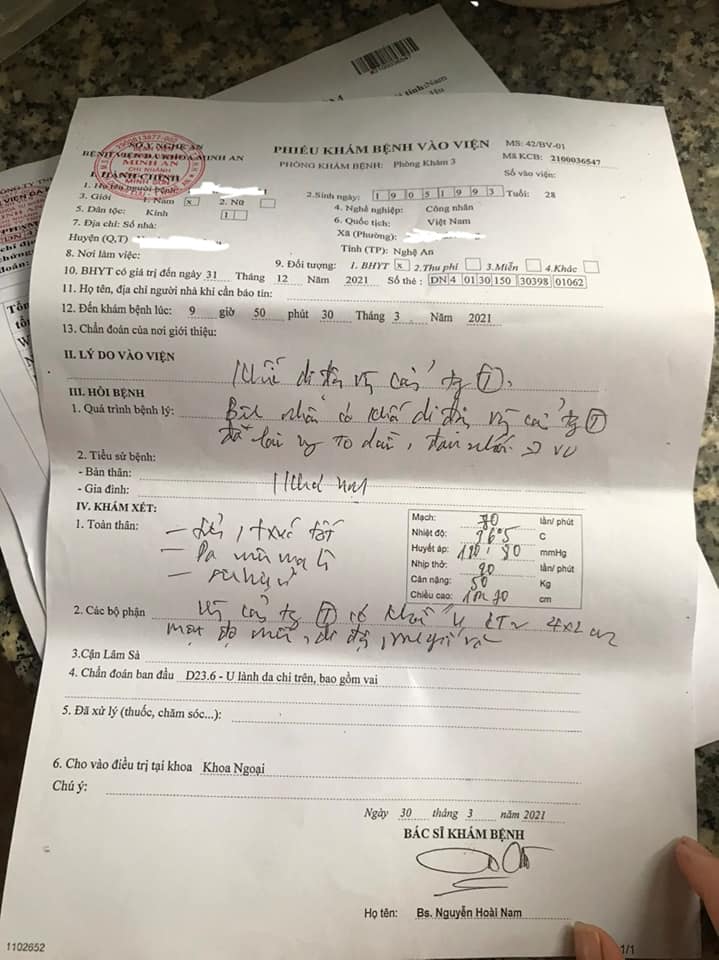 SỞ Y TẾ NGHỆ AN
BỆNH VIỆN ĐA KHOA MINH AN
MINH AN
CHI NHÁNH
PHIẾU KHÁM BỆNH VÀO VIỆN
PHÒNG KHÁM BỆNH: Phòng Khám 3
MS: 42/BV-01
Mã KCB: 2100036547
Số vào viện:
I. HÀNH CHÍNH
1. Họ tên người bệnh:
2.Sinh ngày: 1 9 0 5 1 9 9 3 Tuổi: 28
3. Giới 1. Nam x 2. Nữ
4. Nghề nghiệp: Công nhân
5. Dân tộc: Kinh 1
6. Quốc tịch: Việt Nam
7. Địa chỉ: Số nhà: Xã (Phường):
Huyện (Q,T) Tỉnh (TP): Nghệ An
8. Nơi làm việc:
9. Đối tượng: 1. BHYT x 2.Thu phí 3.Miễn 4.Khác
10. BHYT có giá trị đến ngày 31 Tháng 12 Năm 2021 Số thẻ: DN 4 01 30 150 30398 01062
11. Họ tên, địa chỉ người nhà khi cần báo tin:
12. Đến khám bệnh lúc: 9 giờ 50 phút 30 Tháng 3 Năm 2021
13. Chẩn đoán của nơi giới thiệu:
II. LÝ DO VÀO VIỆN
Khối di động vùng cẳng tay T
III. HỎI BỆNH
1. Quá trình bệnh lý: Bệnh nhân có khối di động vùng cẳng tay T
2. Tiểu sử bệnh:
- Bản thân:
- Gia đình:
IV. KHÁM XÉT:
1. Toàn thân:
Mạch: 80 lần/ phút
Nhiệt độ: 36.5 C
Huyết áp: mmHg
Nhịp thở: 20 lần/ phút
Cân nặng: 50 Kg
Chiều cao: cm
2. Các bộ phận vùng cẳng tay T có khối u KT 4x2 cm
3.Cận Lâm Sà
4. Chẩn đoán ban đầu D23.6 - U lành da chi trên, bao gồm vai
5. Đã xử lý (thuốc, chăm sóc...):
6. Cho vào điều trị tại khoa Khoa Ngoại
Chú ý:
Ngày 30 tháng 3 năm 2021
BÁC SĨ KHÁM BỆNH
Họ tên: Bs. Nguyễn Hoài Nam
1102652
1/1